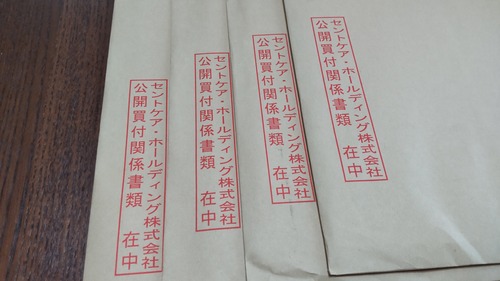 セントケア・ホールディング株式会社
公開買付関係書類　在中
セントケア・ホールディング株式会社
公開買付関係書類　在中
セントケア・ホールディング株式会社
公開買付関係書類　在中
セントケア・ホールディング株式会社
公開買付関係書類　在中